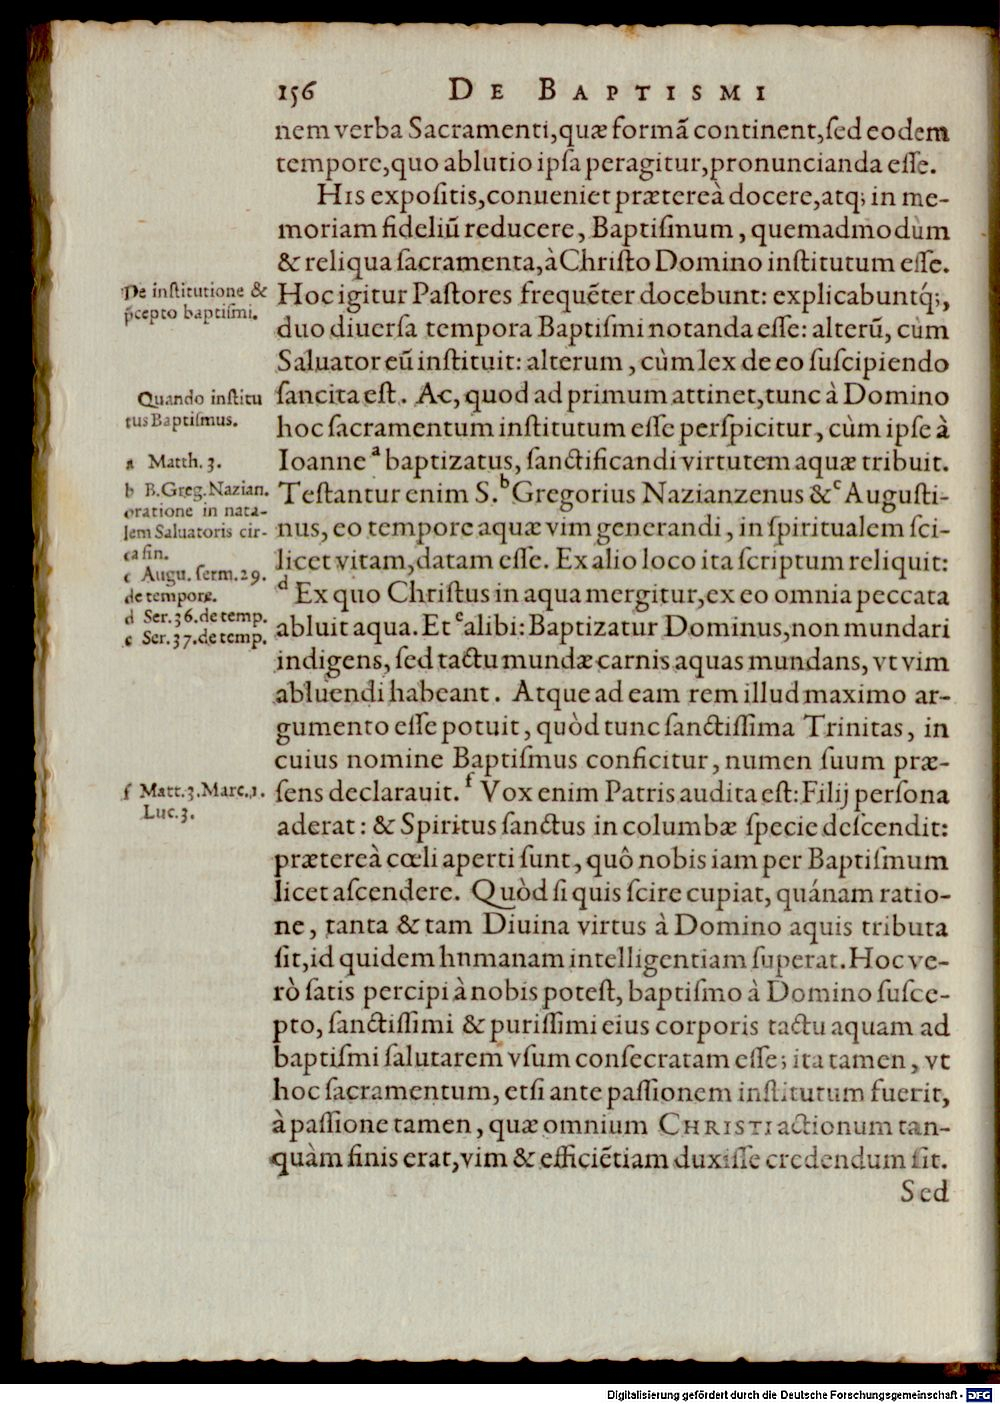 156 DE BAPTISMI
nem verba Sacramenti, quæ formã continent, ſed eodem
tempore, quo ablutio ipſa peragitur, pronuncianda eſſe.
HIS expoſitis, conueniet prætereà docere, atq; in me-
moriam fideliũ reducere, Baptiſmum, quemadmodùm
& reliqua ſacramenta, à Chriſto Domino inſtitutum eſſe.
De inſtitutione &
p̃cepto baptiſmi.
Hoc igitur Paſtores frequẽter docebunt: explicabuntq́;,
duo diuerſa tempora Baptiſmi notanda eſſe: alterũ, cùm
Saluator eũ inſtituit: alterum, cùm lex de eo ſuſcipiendo
Quando inſtitu
tus Baptiſmus.
ſancita eſt. Ac, quod ad primum attinet, tunc à Domino
hoc ſacramentum inſtitutum eſſe perſpicitur, cùm ipſe à
a Matth. 3.
Ioanne a baptizatus, ſanctificandi virtutem aquæ tribuit.
b B. Greg. Nazian.
oratione in nata-
lem Saluatoris cir-
ca fin.
Teſtantur enim S. b Gregorius Nazianzenus & c Auguſti-
nus, eo tempore aquæ vim generandi, in ſpiritualem ſci-
licet vitam, datam eſſe. Ex alio loco ita ſcriptum reliquit:
c Augu. ſerm. 29.
de tempore.
d Ser. 36. de temp.
e Ser. 37. de temp.
d Ex quo Chriſtus in aqua mergitur, ex eo omnia peccata
abluit aqua. Et e alibi: Baptizatur Dominus, non mundari
indigens, ſed tactu mundæ carnis aquas mundans, vt vim
abluendi habeant. Atque ad eam rem illud maximo ar-
gumento eſſe potuit, quòd tunc ſanctiſſima Trinitas, in
cuius nomine Baptiſmus conficitur, numen ſuum præ-
f Matt. 3. Marc. 1.
Luc. 3.
ſens declarauit. f Vox enim Patris audita eſt: Filij perſona
aderat: & Spiritus ſanctus in columbæ ſpecie deſcendit:
prætereà cœli aperti ſunt, quô nobis iam per Baptiſmum
licet aſcendere. Quòd ſi quis ſcire cupiat, quánam ratio-
ne, tanta & tam Diuina virtus à Domino aquis tributa
ſit, id quidem hnmanam intelligentiam ſuperat. Hoc ve-
rò ſatis percipi à nobis poteſt, baptiſmo à Domino ſuſce-
pto, ſanctiſſimi & puriſſimi eius corporis tactu aquam ad
baptiſmi ſalutarem vſum conſecratam eſſe; ita tamen, vt
hoc ſacramentum, etſi ante paſſionem inſtitutum fuerit,
à paſſione tamen, quæ omnium CHRISTI actionum tan-
quàm finis erat, vim & efficiẽtiam duxiſſe credendum ſit.
Sed
Digitalisierung gefördert durch die Deutsche Forschungsgemeinschaft - DFG